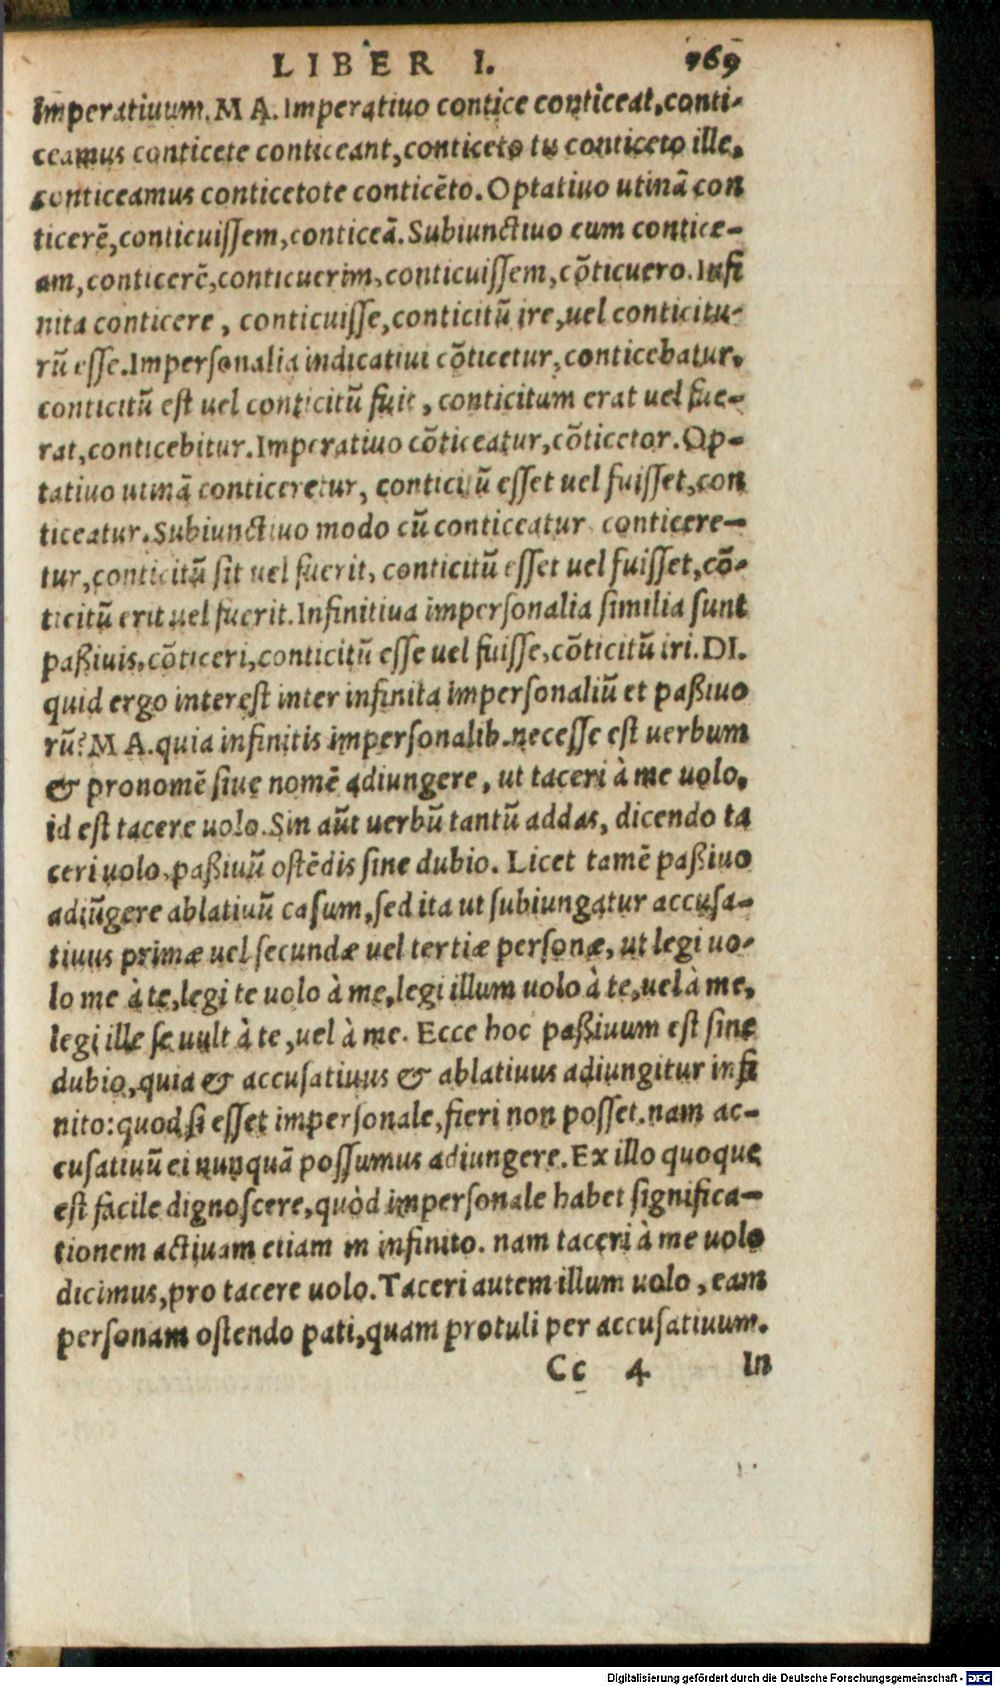 LIBER I. 169
Imperatiuum. MA. Imperatiuo contice conticeat, conti-
ceamus conticete conticeant, conticeto tu conticeto ille,
conticeamus conticetote conticẽto. Optatiuo utinã con
ticerẽ, conticuissem, conticeã. Subiunctiuo cum contice-
am, conticerẽ, conticuerim, conticuissem, cõticuero. Infi
nita conticere, conticuisse, conticitũ ire, uel conticitu-
rũ esse. Impersonalia indicatiui cõticetur, conticebatur,
conticitũ est uel conticitũ fuit, conticitum erat uel fue-
rat, conticebitur. Imperatiuo cõticeatur, cõticetor. Op-
tatiuo utinã conticeretur, conticitũ esset uel fuisset, con
ticeatur. Subiunctiuo modo cũ conticeatur conticere-
tur, conticitũ sit uel fuerit, conticitũ esset uel fuisset, cõ-
ticitũ erit uel fuerit. Infinitiua impersonalia similia sunt
paßiuis, cõticeri, conticitũ esse uel fuisse, cõticitũ iri. DI.
quid ergo interest inter infinita impersonaliũ et paßiuo
rũ? MA. quia infinitis impersonalib. necesse est uerbum
& pronomẽ siue nomẽ adiungere, ut taceri à me uolo,
id est tacere uolo. Sin aũt uerbũ tantũ addas, dicendo ta
ceri uolo, paßiuũ ostẽdis sine dubio. Licet tamẽ paßiuo
adiũgere ablatiuũ casum, sed ita ut subiungatur accusa-
tiuus primæ uel secundæ uel tertiæ personæ, ut legi uo-
lo me à te, legi te uolo à me, legi illum uolo à te, uel à me,
legi ille se uult à te, uel à me. Ecce hoc paßiuum est sine
dubio, quia & accusatiuus & ablatiuus adiungitur infi
nito: quod si esset impersonale, fieri non posset. nam ac-
cusatiuũ ei nunquã possumus adiungere. Ex illo quoque
est facile dignoscere, quòd impersonale habet significa-
tionem actiuam etiam in infinito. nam taceri à me uolo
dicimus, pro tacere uolo. Taceri autem illum uolo, eam
personam ostendo pati, quam protuli per accusatiuum.
Cc 4 In
Digitalisierung gefördert durch die Deutsche Forschungsgemeinschaft - DFG